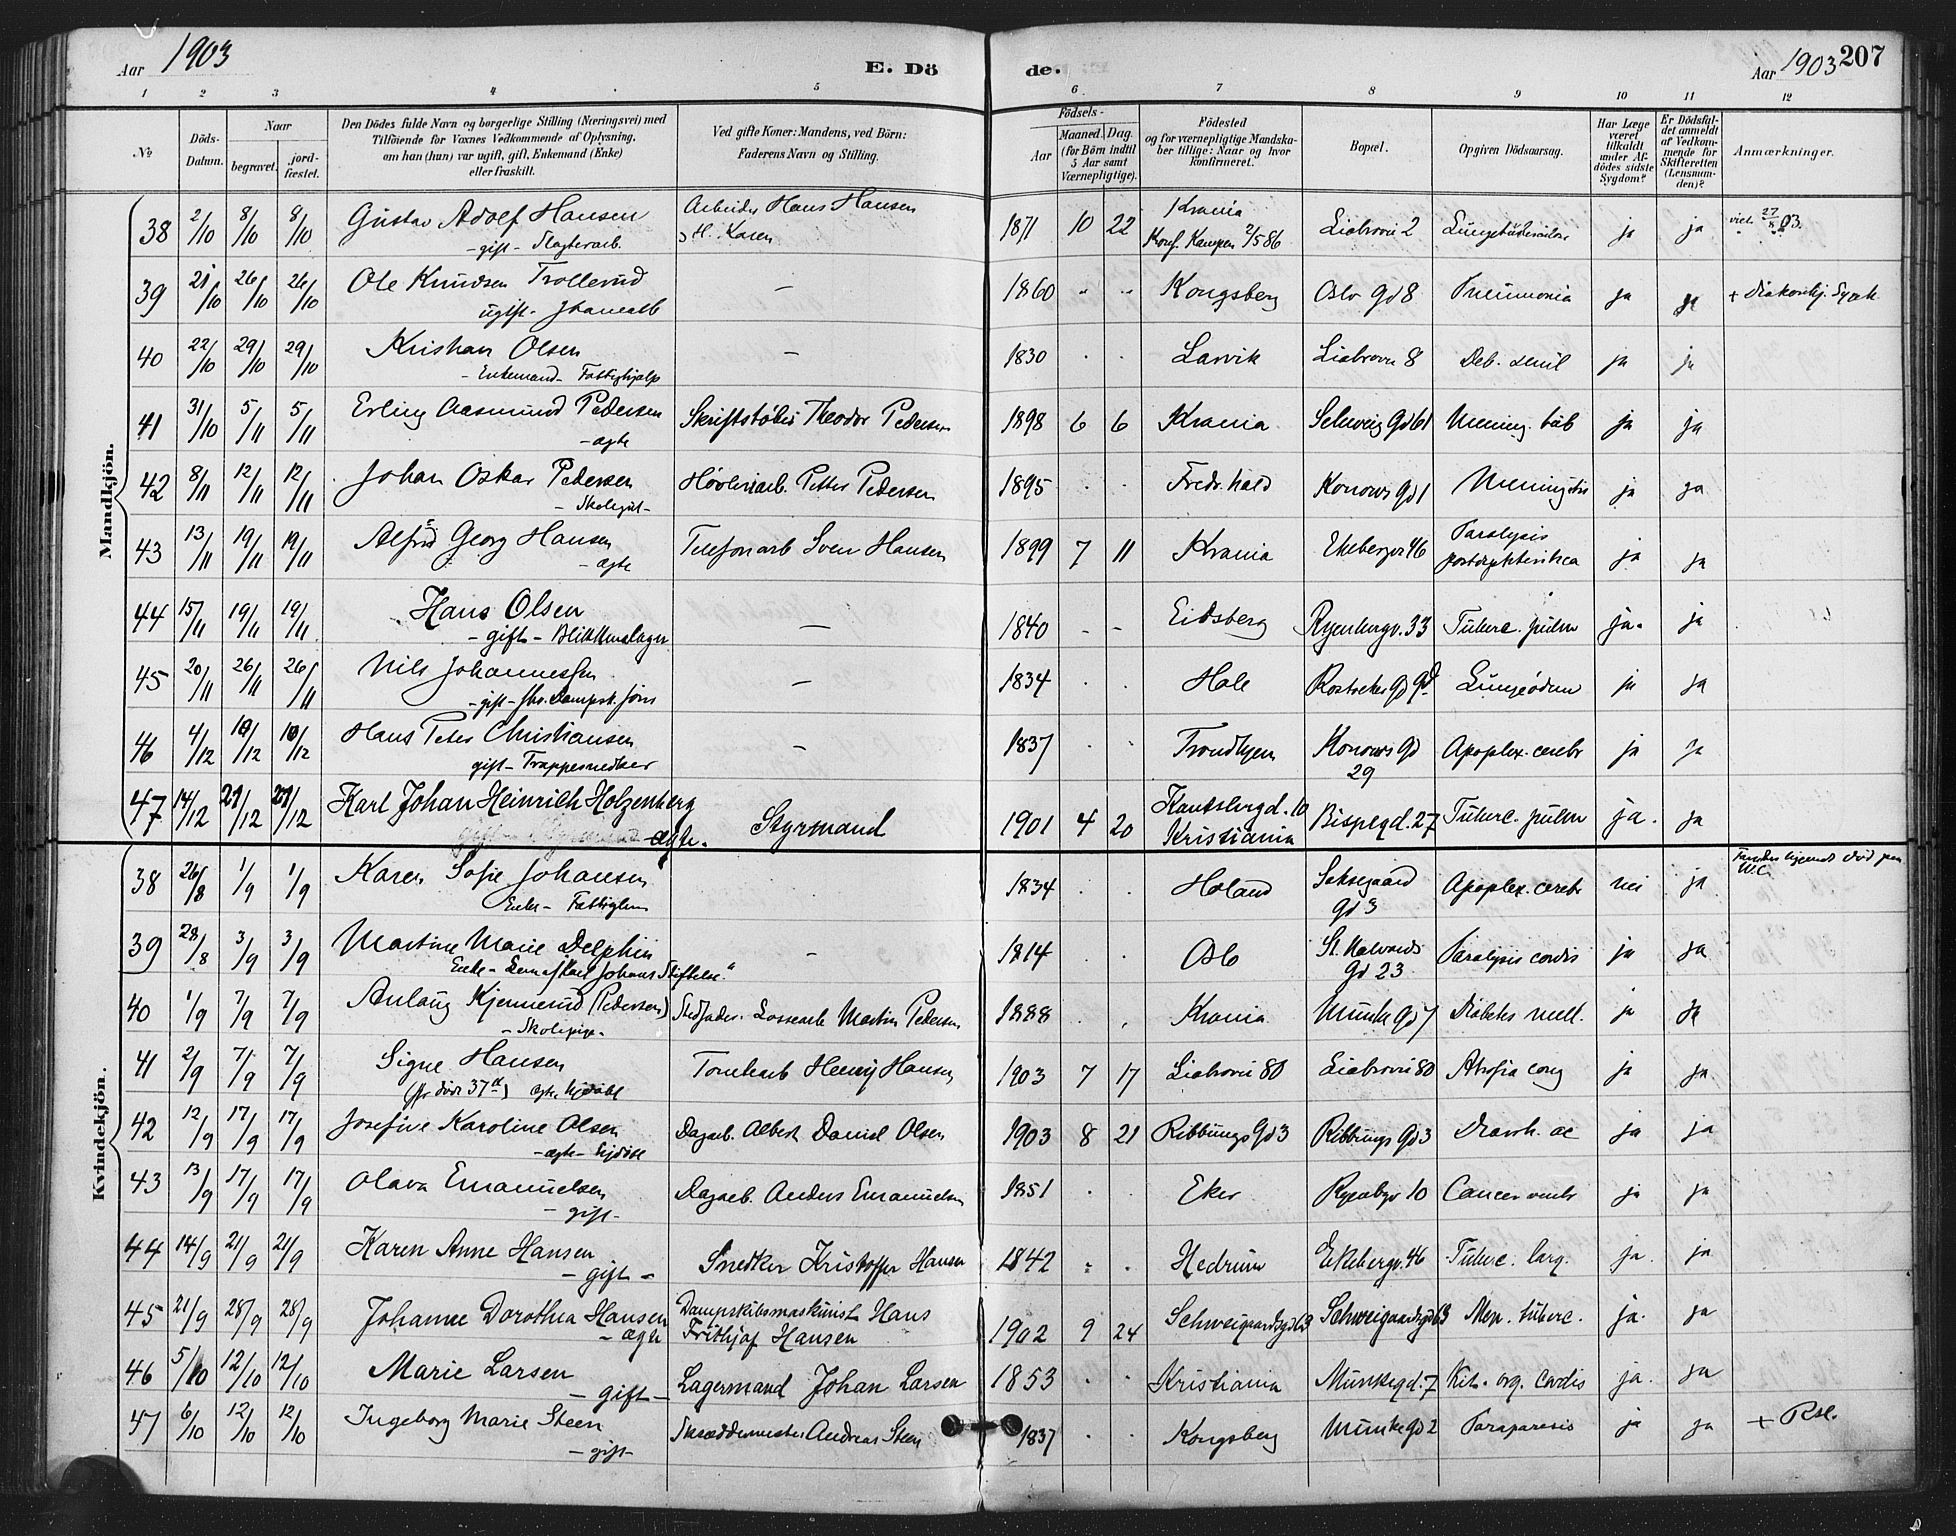 Aar 1903 E. Dö de. Aar 1903 207
1 2 3 4 5 6 7 8 9 10 11 12
No
Döds-Datum.
Naar
begravet.
jord-fæstet.
Den Dödes fulde Navn og borgerlige Stilling (Næringsvei) med
Tilföiende for Voxnes Vedkommende af Oplysning,
om han (hun) var ugift, gift, Enkemand (Enke)
eller fraskilt.
Ved gifte Koner: Mandens, ved Börn:
Faderens Navn og Stilling.
Födsels-
Aar
Maaned. Dag.
(for Börn indtil
5 Aar samt
Værnepligtige).
Födested
og for værnepligtige Mandska-
ber tillige: Naar og hvor
konfirmeret.
Bopæl.
Opgiven Dödsaarsag.
Har Læge
været
tilkaldt
under Af-
dödes sidste
Sygdom?
Er Dödsfal-
det anmeldt
af Vedkom-
mende for
Skifteretten
(Lensman-
den)?
Anmærkninger.
Mandkjön.
38 2/10 8/10 8/10 Gustav Adolf Hansen Arbeider Hans Hansen 1871 10 22 Krania Liabrovei 2 ja ja 27/8 03.
- gift - Slagterarb. H. Karen Konf. Kampen 2/5 86
39 21/10 26/10 26/10 Ole Knudsen Trollerud — 1860 " " Kongsberg Oslo Gd 8 Pneumonia ja ja
ugift -
40 22/10 29/10 29/10 Kristian Olsen — 1830 . . Larvik Liabrovei 8 Deb. senil ja ja
- Enkemand - Fattighjælp
41 31/10 5/11 5/11 Erling Aasmund Pedersen Skriftstøber Theodor Pedersen 1898 6 6 Krania Schweig Gd 61 Mening. tub ja ja
- ægte
42 8/11 12/11 12/11 Johan Oskar Pedersen Høvleriarb. Petter Pedersen 1895 . . Fredr.hald Konows Gd 1 Meningitis ja ja
- Skolegut -
43 13/11 19/11 19/11 Alfred Georg Hansen Telefonarb Sven Hansen 1899 7 11 Krania Ekebergv 46 Paralysis ja ja
- ægte postdiphterithica
44 15/11 19/11 19/11 Hans Olsen — 1840 - - Eidsberg Ryenbergv. 33 Tuberc. pulm ja. ja
- gift - Blikkenslager
45 20/11 26/11 26/11 Nils Johannessen — 1834 . . Hole Lungeödem ja ja
- gift -
46 4/12 10/12 10/12 Hans Peter Christiansen — 1837 . . Trondhjem Konows Gd Apoplex. cerebr ja ja
gift - Trappesnedker 29
47 14/12 21/12 21/12 Karl Johan Heinrich Holzenberg Styrmand 1901 4 20 Bispegd. 27 Tuberc. pulm ja. ja
ægte. Kristiania
Kvindekjön.
38 26/8 1/9 1/9 Karen Sofie Johansen 1834 . . Høland Saksegaard Apoplex. cerebr nei ja W.C.
Enke - Fattiglem Gd 3
39 28/8 3/9 3/9 Martine Marie Delphin — 1814 . . Oslo St. Halvards Paralysis cordis ja ja
Enke - Lem af Carl Johans Stiftelse" Gd 23
40 1/9 7/9 7/9 Anlaug Kjennerud (Pedersen) Stedfader. Lossearb Martin Pedersen 1888 . . Krania Munke Gd 7 Diabetes mell. ja ja
- Skolepige -
41 2/9 7/9 7/9 Signe Hansen Tomtearb Henrij Hansen 1903 7 17 Liabrovei 80 Liabrovei 80 Atrofia cong ja ja
ægte hjdöbt
42 12/9 17/9 17/9 Josefine Karoline Olsen Dagarb. Albert Daniel Olsen 1903 8 21 Ribbungs Gd 3 Ribbungs Gd 3 Diarrh. ac ja ja
- ægte - hjdöbt
43 13/9 17/9 17/9 Olava Emanuelsen Dagarb. Anders Emanuelsen 1851 . . Eker Ryenbgv 10 Cancer ventr ja ja
- gift -
44 14/9 21/9 21/9 Karen Anne Hansen Snedker Kristoffer Hansen 1842 " . Hedrum Ekebergv. 46 Tuberc. larg. ja. ja
- gift -
45 21/9 28/9 28/9 Johanne Dorothea Hansen Dampskibsmaskinist Hans 1902 9 24 Schweigaardsgd 63 Schweigaardsgd 63 Men. tuberc. ja. ja
- ægte Frithjof Hansen
46 5/10 12/10 12/10 Marie Larsen Lagermand Johan Larsen 1853 . . Kristiania Munkegd. 7 Vit. org. Cordis ja. ja
- gift -
47 6/10 12/10 12/10 Ingeborg Marie Steen Skræddermester Andreas Steen 1837 . . Kongsberg Munke Gd 2 Paraparesis ja ja
- gift -